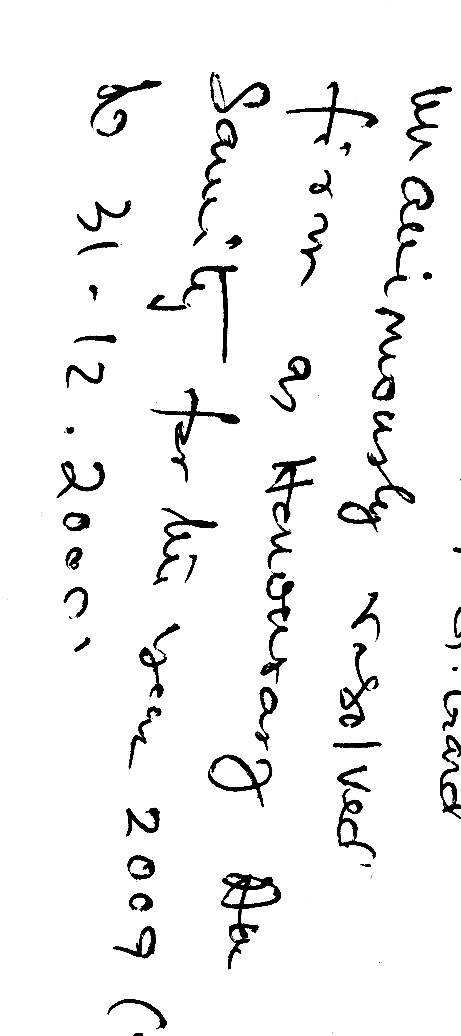 unanimously resolved
firm as Honourary
Samity for the year 2009 (
to 31-12.200